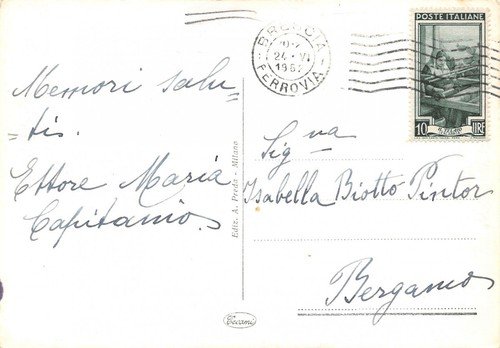 Memori salu
tis.
Ettore Maria
Capitanio
Ediz. A. Preda - Milano
BRESCIA
24 VI
FERROVIA
POSTE ITALIANE
10 LIRE
Sig.na
Isabella Biotto-Pintor
Bergamo